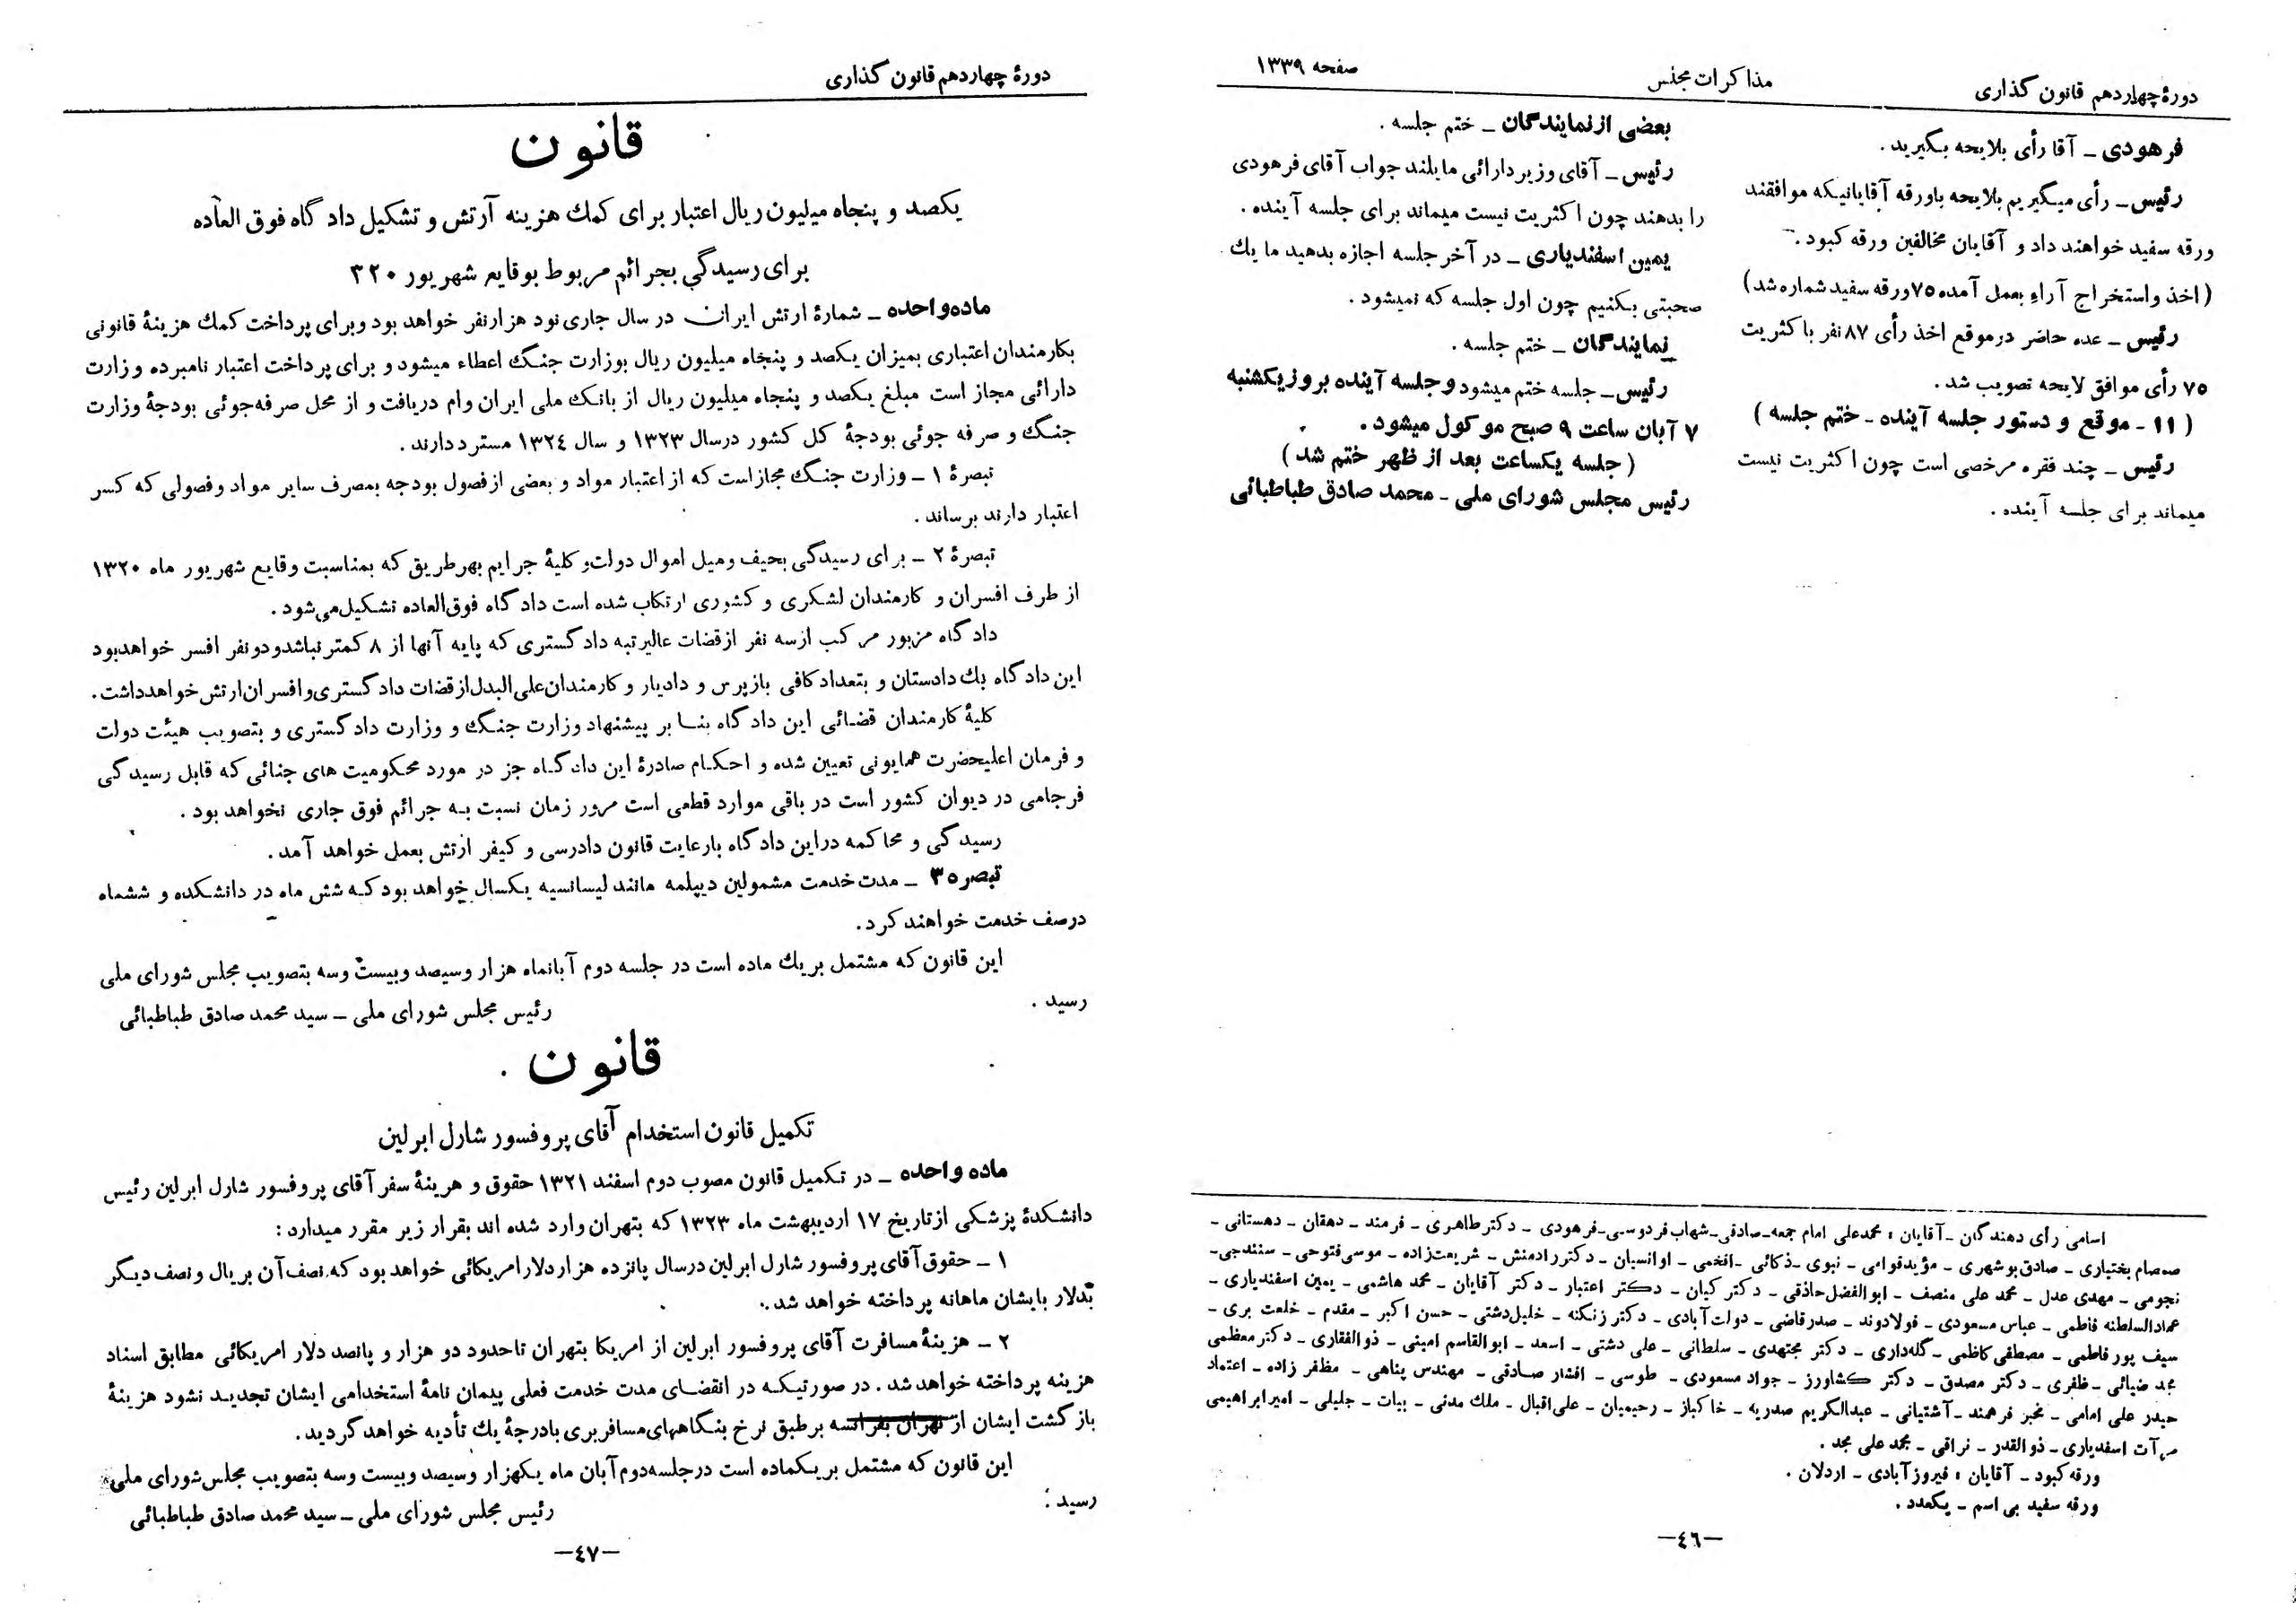 دورهٔ چهاردهم قانون گذاری
مذاکرات مجلس
صفحه ۱۳۳۹
فرهودی ـ آقا رأی بلایحه بگیرید.
رئیس ـ رأی میگیریم بلایحه باورقه آقایانیکه موافقند
ورقه سفید خواهند داد و آقایان مخالفین ورقه کبود.
(اخذ واستخراج آراء بعمل آمده ۷۵ ورقه سفید شماره شد)
رئیس ـ عده حاضر درموقع اخذ رأی ۸۷ نفر با کثریت
۷۵ رأی موافق لایحه تصویب شد.
(۱۱ ـ موقع و دستور جلسه آینده ـ ختم جلسه)
رئیس ـ چند فقره مرخصی است چون اکثریت نیست
میماند برای جلسه آینده.
بعضی از نمایندگان ـ ختم جلسه.
رئیس ـ آقای وزیر دارائی مایلند جواب آقای فرهودی
را بدهند چون اکثریت نیست میماند برای جلسه آینده.
یمین اسفندیاری ـ در آخر جلسه اجازه بدهید ما یك
صحبتی بکنیم چون اول جلسه که نمیشود.
نمایندگان ـ ختم جلسه.
رئیس ـ جلسه ختم میشود و جلسه آینده بروز یکشنبه
۷ آبان ساعت ۹ صبح موکول میشود.
(جلسه یکساعت بعد از ظهر ختم شد)
رئیس مجلس شورای ملی ـ محمد صادق طباطبائی
اسامی رأی دهندگان ـ آقایان: محمدعلی امام جمعه ـ صادقی ـ شهاب فردوسی ـ فرهودی ـ دکتر طاهری ـ فرمند ـ دهقان ـ دهستانی ـ
صمصام بختیاری ـ صادق بوشهری ـ مؤید قوامی ـ نبوی ـ ذکائی ـ افخمی ـ اوانسیان ـ دکتر رادمنش ـ شریعت زاده ـ موسی فتوحی ـ سنندجی ـ
نجومی ـ مهدی عدل ـ محمد علی منصف ـ ابوالفضل حاذقی ـ دکتر کیان ـ دکتر اعتبار ـ دکتر آقایان ـ محمد هاشمی ـ یمین اسفندیاری ـ
عمادالسلطنه فاطمی ـ عباس مسعودی ـ فولادوند ـ صدرقاضی ـ دولت آبادی ـ دکتر زنگنه ـ خلیل دشتی ـ حسن اکبر ـ مقدم ـ خلعت بری ـ
سیف پور فاطمی ـ مصطفی کاظمی ـ گله داری ـ دکتر مجتهدی ـ سلطانی ـ علی دشتی ـ اسعد ـ ابوالقاسم امینی ـ ذوالفقاری ـ دکتر معظمی
مجد ضیائی ـ ظفری ـ دکتر مصدق ـ دکتر کشاورز ـ جواد مسعودی ـ طوسی ـ افشار صادقی ـ مهندس پناهی ـ مظفر زاده ـ اعتماد
حیدر علی امامی ـ مخبر فرهمند ـ آشتیانی ـ عبدالکریم صدریه ـ خاکباز ـ رحیمیان ـ علی اقبال ـ ملك مدنی ـ بیات ـ جلیلی ـ امیر ابراهیمی
مرآت اسفندیاری ـ ذوالقدر ـ نراقی ـ محمد علی مجد.
ورقه کبود ـ آقایان: فیروز آبادی ـ اردلان.
ورقه سفید بی اسم ـ یکعدد.
ـ٤٦ـ
دورهٔ چهاردهم قانون گذاری
قانون
یکصد و پنجاه میلیون ریال اعتبار برای کمك هزینه آرتش و تشکیل دادگاه فوق العاده
برای رسیدگی بجرائم مربوط بوقایع شهریور ۳۲۰
ماده واحده ـ شمارهٔ ارتش ایران در سال جاری نود هزار نفر خواهد بود و برای پرداخت کمك هزینهٔ قانونی
بکارمندان اعتباری بمیزان یکصد و پنجاه میلیون ریال بوزارت جنگ اعطاء میشود و برای پرداخت اعتبار نامبرده وزارت
دارائی مجاز است مبلغ یکصد و پنجاه میلیون ریال از بانك ملی ایران وام دریافت و از محل صرفه جوئی بودجهٔ وزارت
جنگ و صرفه جوئی بودجهٔ کل کشور درسال ۱۳۲۳ و سال ۱۳۲٤ مسترد دارند.
تبصرهٔ ۱ ـ وزارت جنگ مجاز است که از اعتبار مواد و بعضی از فصول بودجه بمصرف سایر مواد و فصولی که کسر
اعتبار دارند برساند.
تبصرهٔ ۲ ـ برای رسیدگی بحیف و میل اموال دولت و کلیهٔ جرایم بهر طریق که بمناسبت وقایع شهریور ماه ۱۳۲۰
از طرف افسران و کارمندان لشکری و کشوری ارتکاب شده است دادگاه فوق العاده تشکیل می شود.
دادگاه مزبور مرکب از سه نفر از قضات عالیرتبه دادگستری که پایه آنها از ۸ کمتر نباشد و دو نفر افسر خواهد بود
این دادگاه یك دادستان و بتعداد کافی بازپرس و دادیار و کارمندان علی البدل از قضات دادگستری و افسران ارتش خواهد داشت.
کلیهٔ کارمندان قضائی این دادگاه بنا بر پیشنهاد وزارت جنگ و وزارت دادگستری و بتصویب هیئت دولت
و فرمان اعلیحضرت همایونی تعیین شده و احکام صادرهٔ این دادگاه جز در مورد محکومیت های جنائی که قابل رسیدگی
فرجامی در دیوان کشور است در باقی موارد قطعی است مرور زمان نسبت به جرائم فوق جاری نخواهد بود.
رسیدگی و محاکمه دراین دادگاه بارعایت قانون دادرسی و کیفر ارتش بعمل خواهد آمد.
تبصره ۳ ـ مدت خدمت مشمولین دیپلمه مانند لیسانسیه یکسال خواهد بود که شش ماه در دانشکده و ششماه
درصف خدمت خواهند کرد.
این قانون که مشتمل بریك ماده است در جلسه دوم آبانماه هزار و سیصد و بیست و سه بتصویب مجلس شورای ملی
رسید.
رئیس مجلس شورای ملی ـ سید محمد صادق طباطبائی
قانون
تکمیل قانون استخدام آقای پروفسور شارل ابرلین
ماده واحده ـ در تکمیل قانون مصوب دوم اسفند ۱۳۲۱ حقوق و هزینهٔ سفر آقای پروفسور شارل ابرلین رئیس
دانشکدهٔ پزشکی از تاریخ ۱۷ اردیبهشت ماه ۱۳۲۳ که بتهران وارد شده اند بقرار زیر مقرر میدارد:
۱ ـ حقوق آقای پروفسور شارل ابرلین درسال پانزده هزار دلار امریکائی خواهد بود که نصف آن بریال و نصف دیگر
بدلار بایشان ماهانه پرداخته خواهد شد.
۲ ـ هزینهٔ مسافرت آقای پروفسور ابرلین از امریکا بتهران تاحدود دو هزار و پانصد دلار امریکائی مطابق اسناد
هزینه پرداخته خواهد شد. در صورتیکه در انقضای مدت خدمت فعلی پیمان نامهٔ استخدامی ایشان تجدید نشود هزینهٔ
بازگشت ایشان از تهران بفرانسه برطبق نرخ بنگاههای مسافربری بادرجهٔ یك تأدیه خواهد گردید.
این قانون که مشتمل بریکماده است درجلسه دوم آبان ماه یکهزار و سیصد و بیست و سه بتصویب مجلس شورای ملی
رسید.
رئیس مجلس شورای ملی ـ سید محمد صادق طباطبائی
ـ٤۷ـ